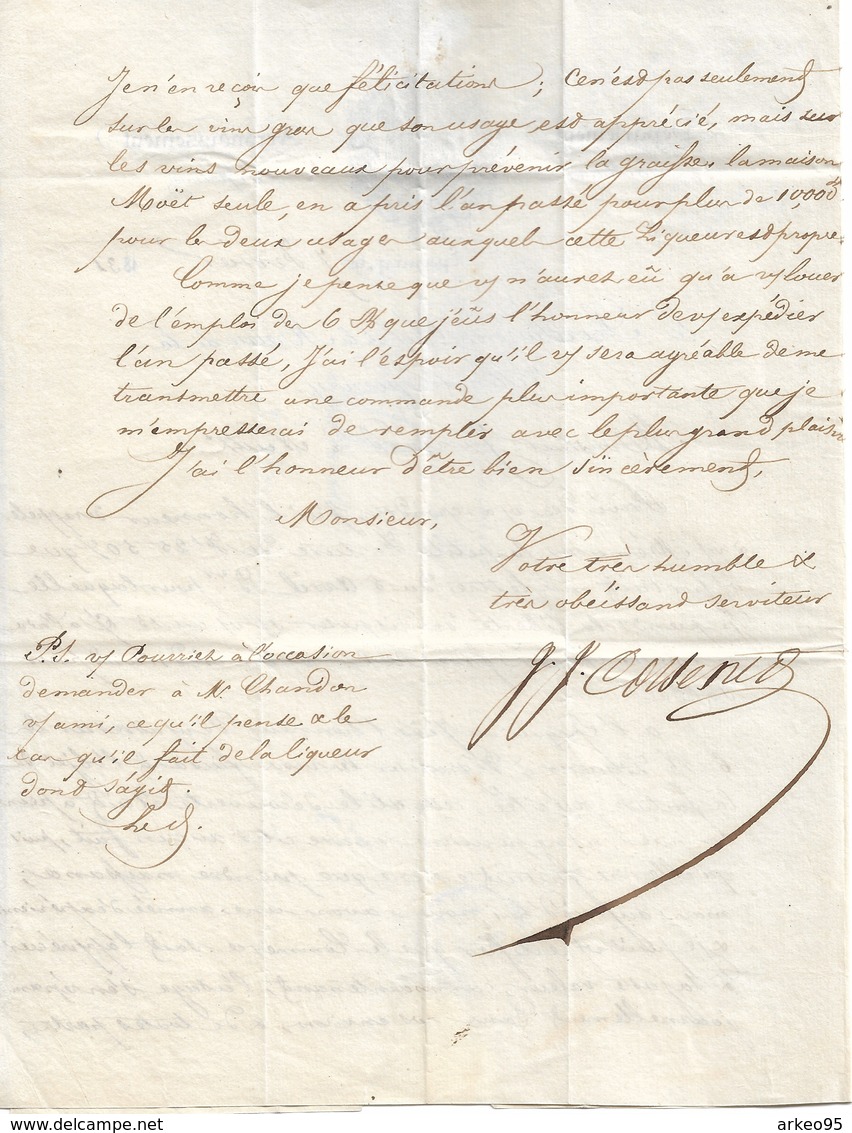 Je n'en reçois que félicitations ; Ce n'est pas seulement
sur les vins gras que son usage est apprécié, mais sur
les vins nouveaux pour prévenir la graisse. la maison
Moët seule, en a pris l'an passé pour plus de 1,000
pour les deux usages auxquels cette Liqueur est propre
Comme je pense que vs n'aurez eû qu'à vs louer
de l'emploi des 6 que j'eûs l'honneur de vs expédier
l'an passé, J'ai l'espoir qu'il vs sera agréable de me
transmettre une commande plus importante que je
m'empresserai de remplir avec le plus grand plaisir
J'ai l'honneur d'être bien sincèrement,
Monsieur,
Votre très humble &
très obéissant serviteur
J. J. Cossenet
P.S. vs Pourriez à l'occasion
demander à Mr Chandon
vs ami, ce qu'il pense & le
cas qu'il fait de la liqueur
dont s'agit.
delcampe.net
arkeo95